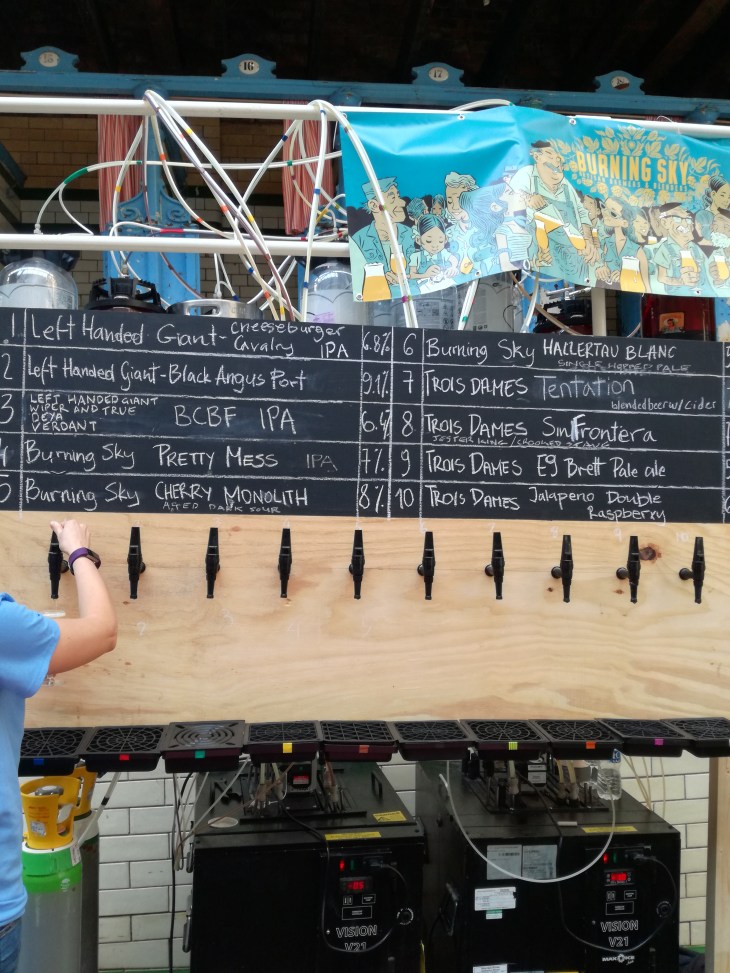 15
16
17
BURNING SKY
1 Left Handed Giant - Cheeseburger
Cavalry IPA 6.8%
2 Left Handed Giant - Black Angus Port 9.1%
3 LEFT HANDED GIANT
WIPER AND TRUE
DEYA
VERDANT
BCBF IPA 6.4%
4 Burning Sky PRETTY MESS IPA 7%
5 Burning Sky CHERRY MONOLITH 8%
AGED DARK SOUR
6 Burning Sky HALLERTAU BLANC
SINGLE HOPPED PALE
7 TROIS DAMES Tentation
blended beer w/ Cider
8 TROIS DAMES Sin Frontera
JESTER KING / CROOKED STAVE
9 TROIS DAMES E9 Brett Pale ale
10 TROIS DAMES Jalapeno Double
Raspberry
VISION
V21
VISION
V21